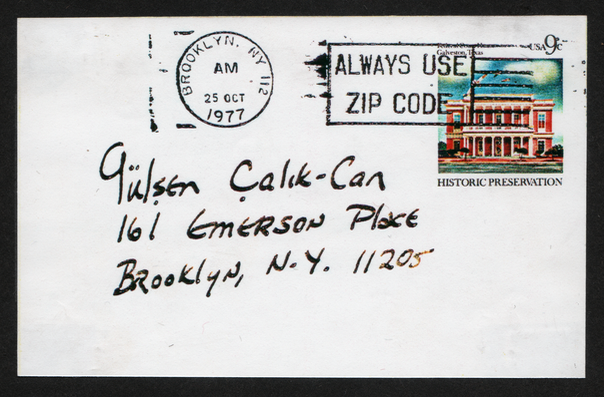 BROOKLYN, NY 112
AM
25 OCT
1977
ALWAYS USE
ZIP CODE
USA 9c
Galveston, Texas
HISTORIC PRESERVATION
Gülşen Çalık-Can
161 EMERSON PlACE
BROOKlyN, N.Y. 11205